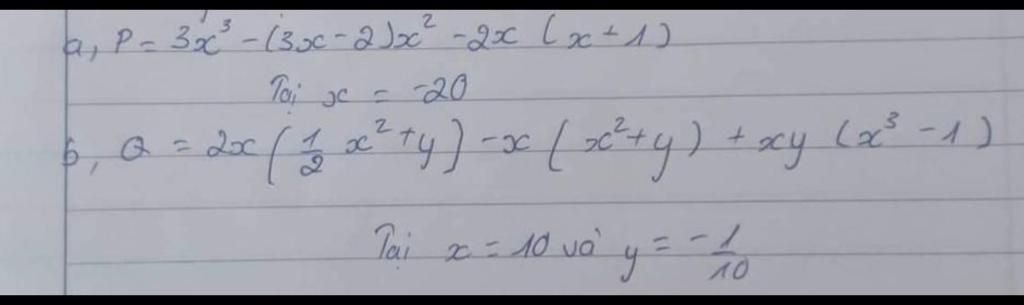 a, P = 3x³ - (3x - 2)x² - 2x (x + 1)
Tại x = -20
b, Q = 2x(1/2 x² + y) - x(x² + y) + xy (x³ - 1)
Tại x = 10 và y = -1/10